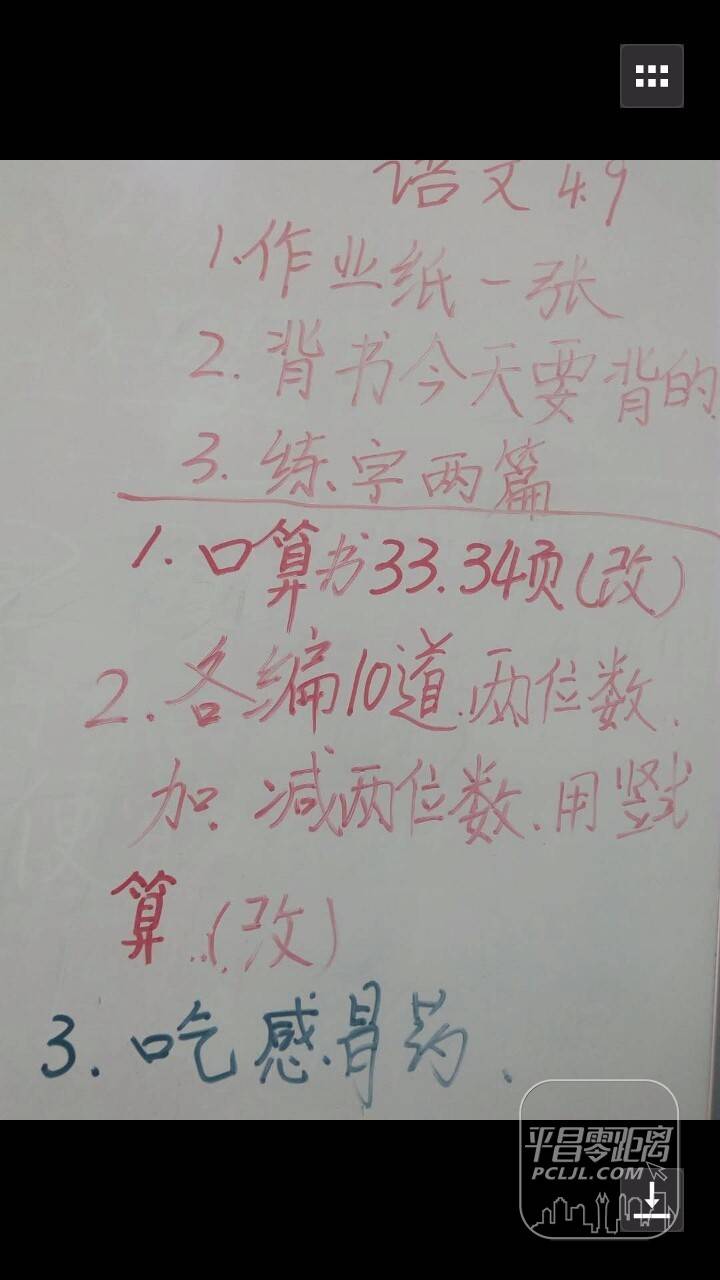 语文4.9
1.作业纸一张
2.背书今天要背的
3.练字两篇
1.口算书33.34页(改)
2.各编10道.两位数.
加.减两位数.用竖式
算.(改)
3.吃感冒药.
平昌零距离
PCLJL.COM